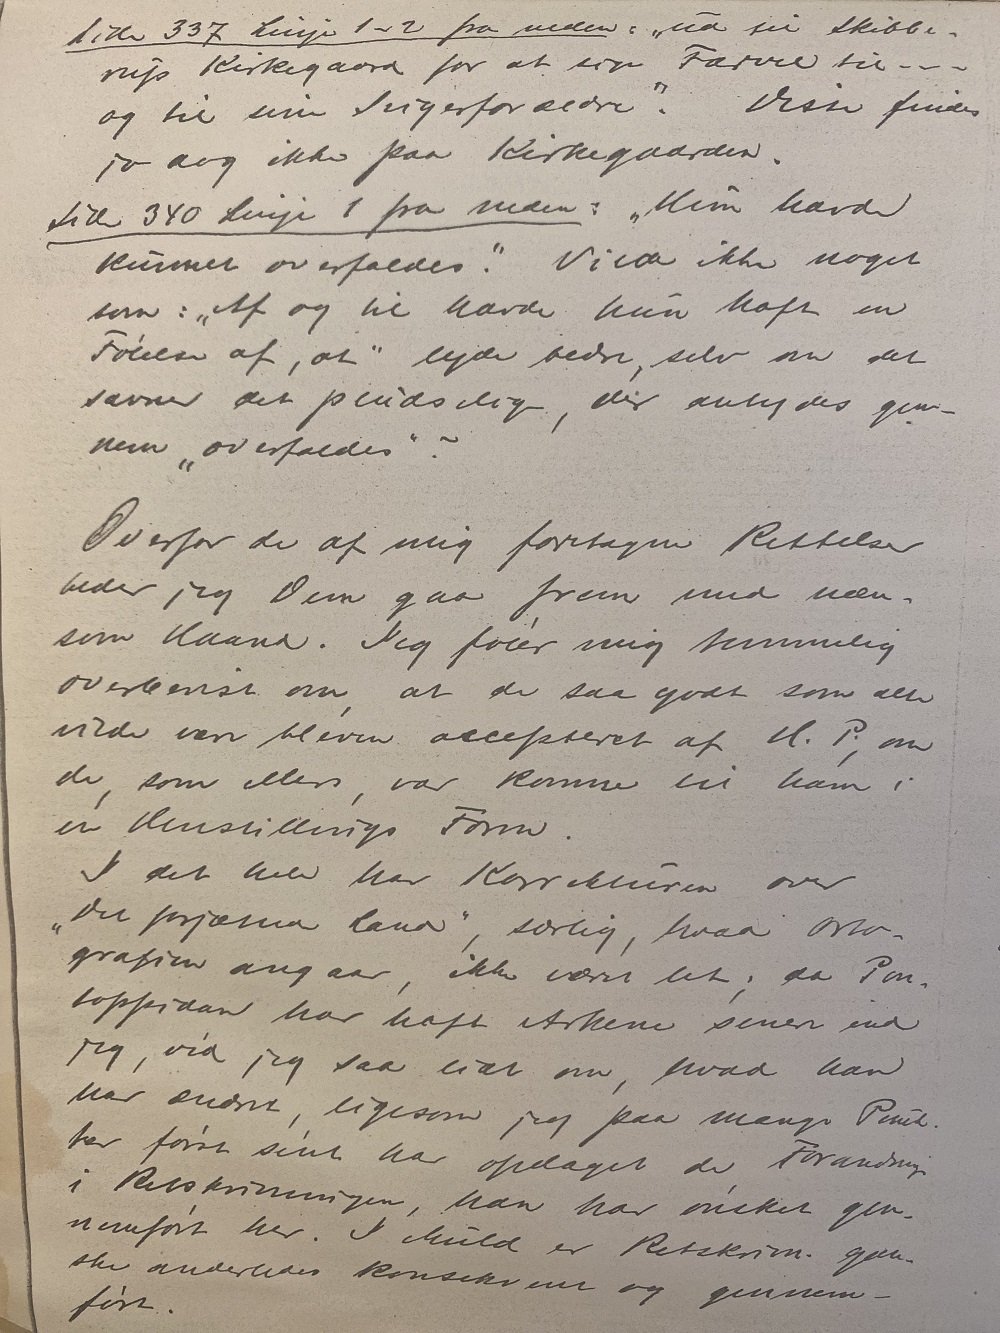 Side 337 Linje 1-2 fra neden: „ud til Skibbe-
rup Kirkegaard for at sige Farvel til ---
og til sine Svigerforældre". Disse findes
jo dog ikke paa Kirkegaarden.
Side 340 Linje 1 fra neden: „Hun havde
kunnet overfaldes." Vilde ikke noget
som: „Af og til havde hun haft en
Følelse af, at" lyde bedre, selv om det
savner det pludselige, der antydes gen-
nem „overfaldes"?
Overfor de af mig foretagne Rettelser
beder jeg Dem gaa frem med næn-
som Haand. Jeg føler mig temmelig
overbevist om, at de saa godt som alle
vilde være bleven accepteret af H. P., om
de, som ellers, var komne til ham i
en Henstillings Form.
I det hele har Korrekturen over
„Det forjættede Land", særlig, hvad Orto-
grafien angaar, ikke været let; da Pon-
toppidan har haft Arkene senere end
jeg, véd jeg saa lidt om, hvad han
har ændret, ligesom jeg paa mange Punk-
ter først sént har opdaget de Forandring
i Retskrivningen, han har ønsket gen-
nemført her. I Muld er Retskrivn. gan-
ske anderledes konsekvent og gennem-
ført.